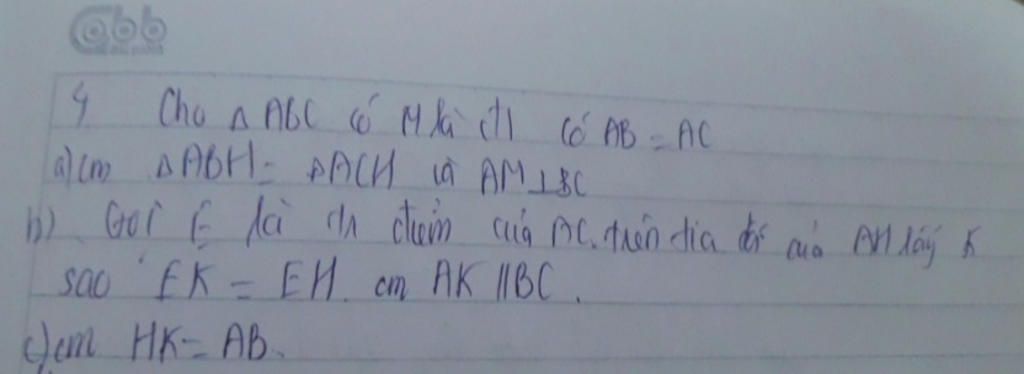 abb
4 Cho △ ABC có M là có AB = AC
a) cm △ABH = △ACH và AM⊥BC
b) Gọi E là điểm của AC. trên tia của AH lấy K
sao EK = EH. cm AK // BC.
c) cm HK = AB.